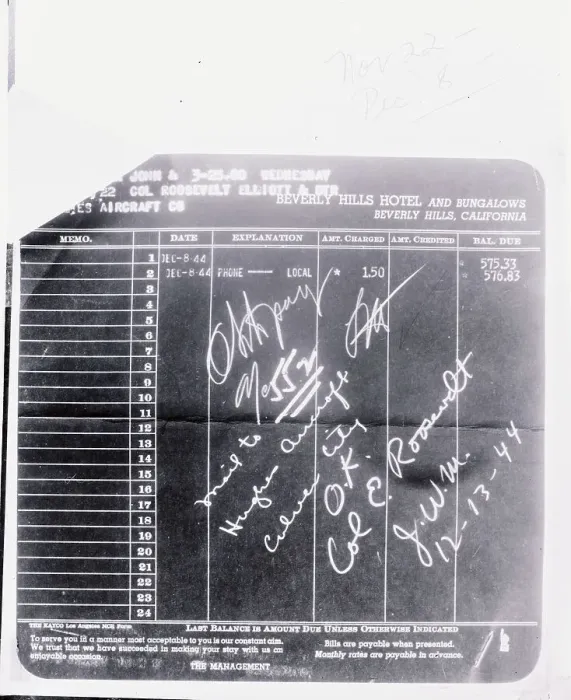 Nov 22 -
Dec 8 -
JOHN & 3-25.00 WEDNESDAY
22 COL ROOSEVELT ELLIOTT &
ES AIRCRAFT CO
BEVERLY HILLS HOTEL AND BUNGALOWS
BEVERLY HILLS, CALIFORNIA
MEMO. DATE EXPLANATION AMT. CHARGED AMT. CREDITED BAL. DUE
1 DEC-8-44 575.33
2 DEC-8-44 PHONE — LOCAL * 1.50 576.83
3
4
5
6
7
8
9
10
11
12
13
14
15
16
17
18
19
20
21
22
23
24
OK to pay
mail to
Hughes Aircraft
Culver City
O.K.
Col E. Roosevelt
J.W.M.
12-13-44
THE KAYCO Los Angeles NCR Form
LAST BALANCE IS AMOUNT DUE UNLESS OTHERWISE INDICATED
To serve you in a manner most acceptable to you is our constant aim.
We trust that we have succeeded in making your stay with us an
enjoyable occasion.
THE MANAGEMENT
Bills are payable when presented.
Monthly rates are payable in advance.